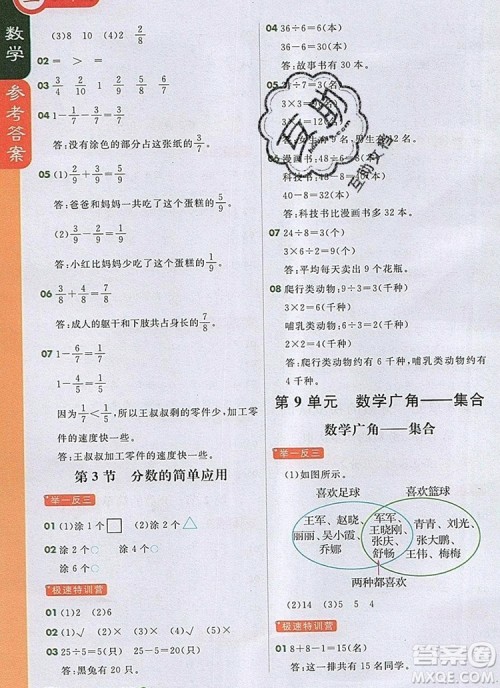 数学
参考答案
(3)8 10 (4)2 2/8
02 = > =
03 3/4 2/10 4/10 1/8 4/8
04 1-1/7-3/7=3/7
答:没有涂色的部分占这张纸的3/7。
05 (1)3/9+2/9=5/9
答:爸爸和妈妈一共吃了这个蛋糕的5/9。
(2)3/9-1/9=2/9
答:小红比妈妈多吃了这个蛋糕的2/9。
06 3/8+4/8=7/8
答:成人的躯干、腿脚共占身长的7/8。
07 1-6/7=1/7
1-7/10=3/10
因为1/7<3/10,所以王叔叔剩的零件少,加工零件的速度快一些。
答:王叔叔加工零件的速度快一些。
第 3 节 分数的简单应用
举一反三
01 (1)涂 1 个□
(2)涂 5 个○
02 涂 4 个○
03 涂 2 个○
极速特训营
01 (1)2 (2)6
02 (1)√ (2)× (3)× (4)√
03 25÷5=5(只) 25-5=20(只)
答:黑兔有 20 只。
04 36÷6=6(本)
36-6=30(本)
答:故事书有 30 本。
3×3=9(名)
06 漫画书:48÷6=8(本)
40-8=32(本)
答:科技书比漫画书多 32 本。
07 24÷8=3(个)
3×3=9(个)
答:平均每天卖出 9 个花瓶。
08 爬行类动物:9÷3=3(千种)
3×2=6(千种)
哺乳类动物:
答:爬行类动物约有 6 千种,哺乳类动物约有
千种。
第 9 单元 数学广角——集合
数学广角——集合
举一反三
(1)如图所示。
喜欢足球 喜欢篮球
王军、赵晓、丽丽、吴小霞、乔娜
军军、王晓刚、张庆、舒畅
青青、刘光、张大鹏、王伟、梅梅
两种都喜欢
(2)14 (3)5 5 4
极速特训营
01 8+8-1=15(名)
答:这一排共有 15 名同学。
互助
答案圈